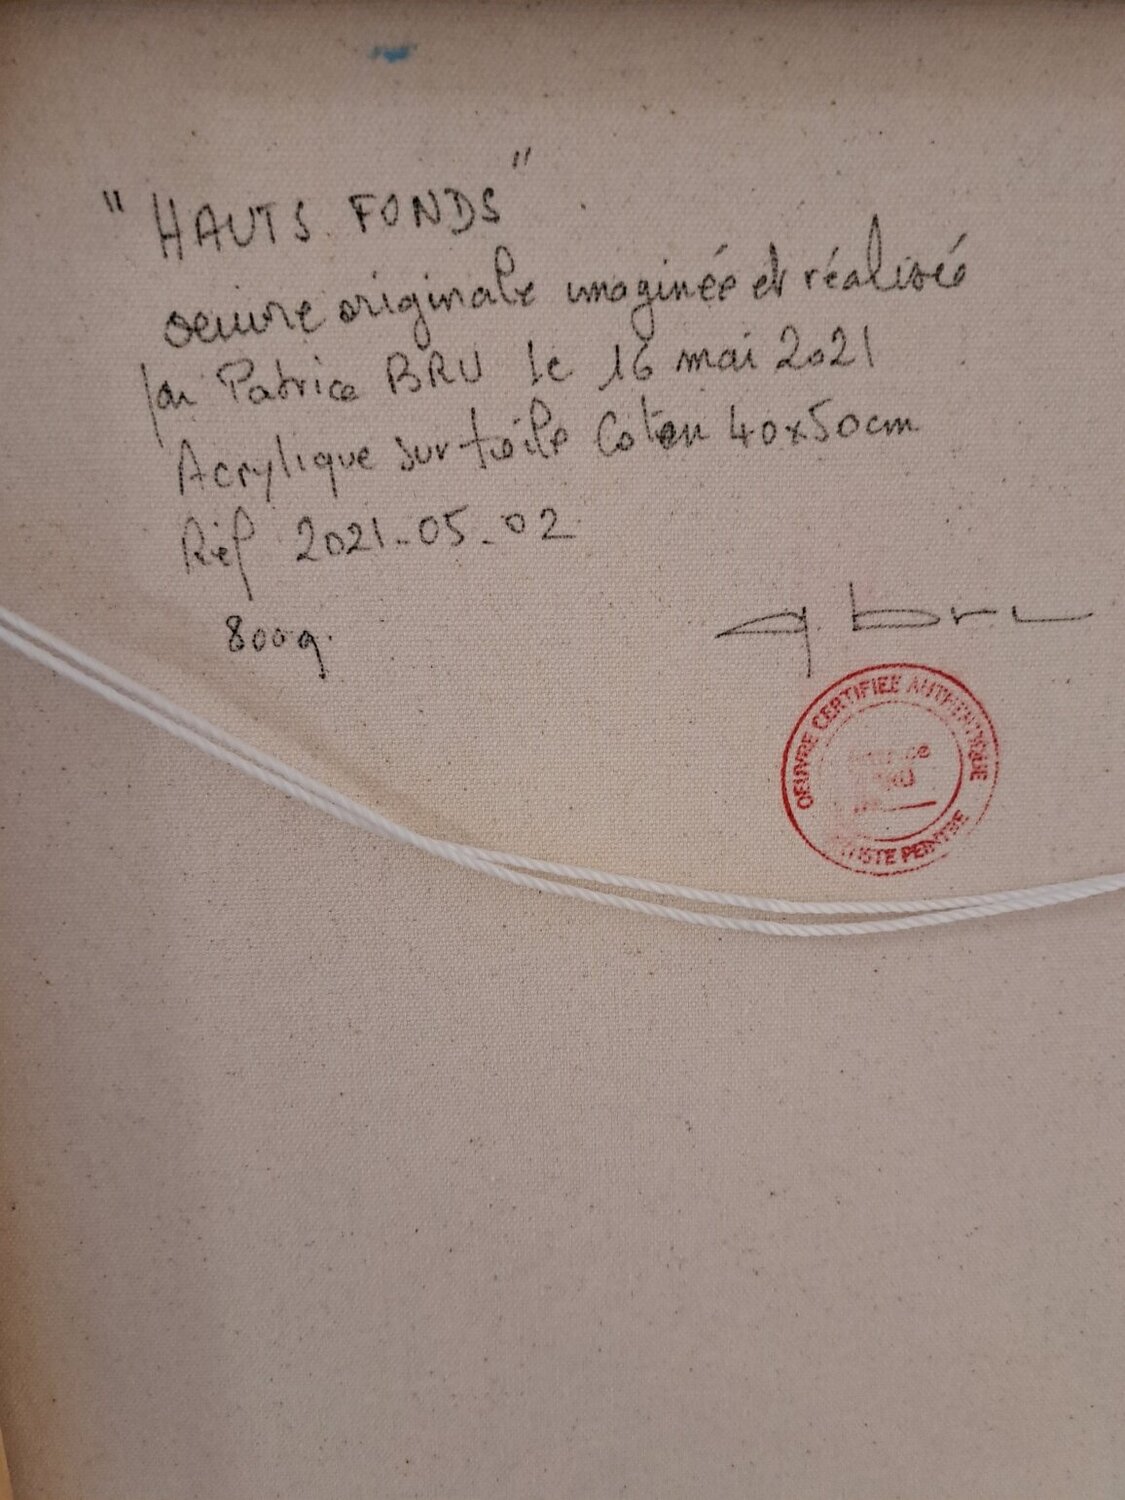 "HAUTS FONDS"
oeuvre originale imaginée et réalisée
par Patrice BRU le 16 mai 2021
Acrylique sur toile Coton 40x50cm
Réf 2021-05-02
800g.
bru
OEUVRE CERTIFIEE AUTHENTIQUE
BRU
PEINTRE